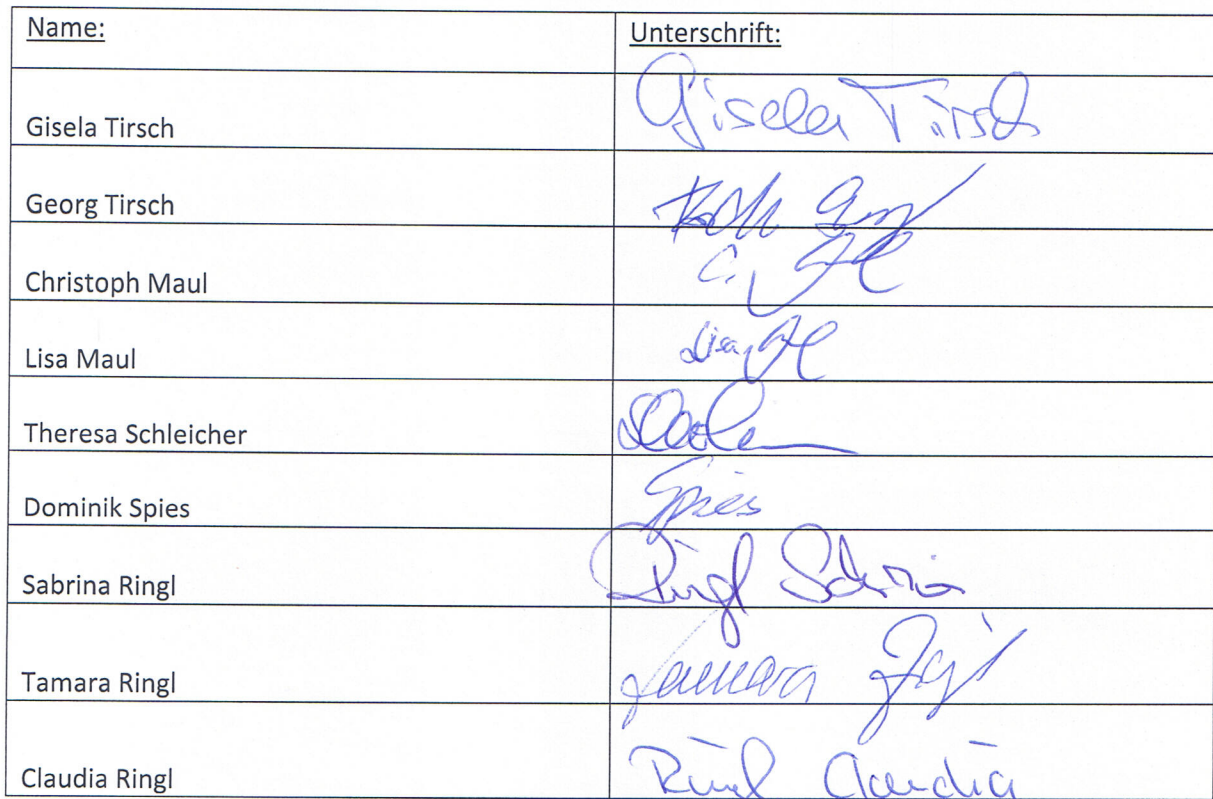 Name: Unterschrift:
Gisela Tirsch Gisela Tirsch
Georg Tirsch
Christoph Maul
Lisa Maul Lisa
Theresa Schleicher
Dominik Spies Spies
Sabrina Ringl Ringl Sabrina
Tamara Ringl Tamara
Claudia Ringl Ringl Claudia